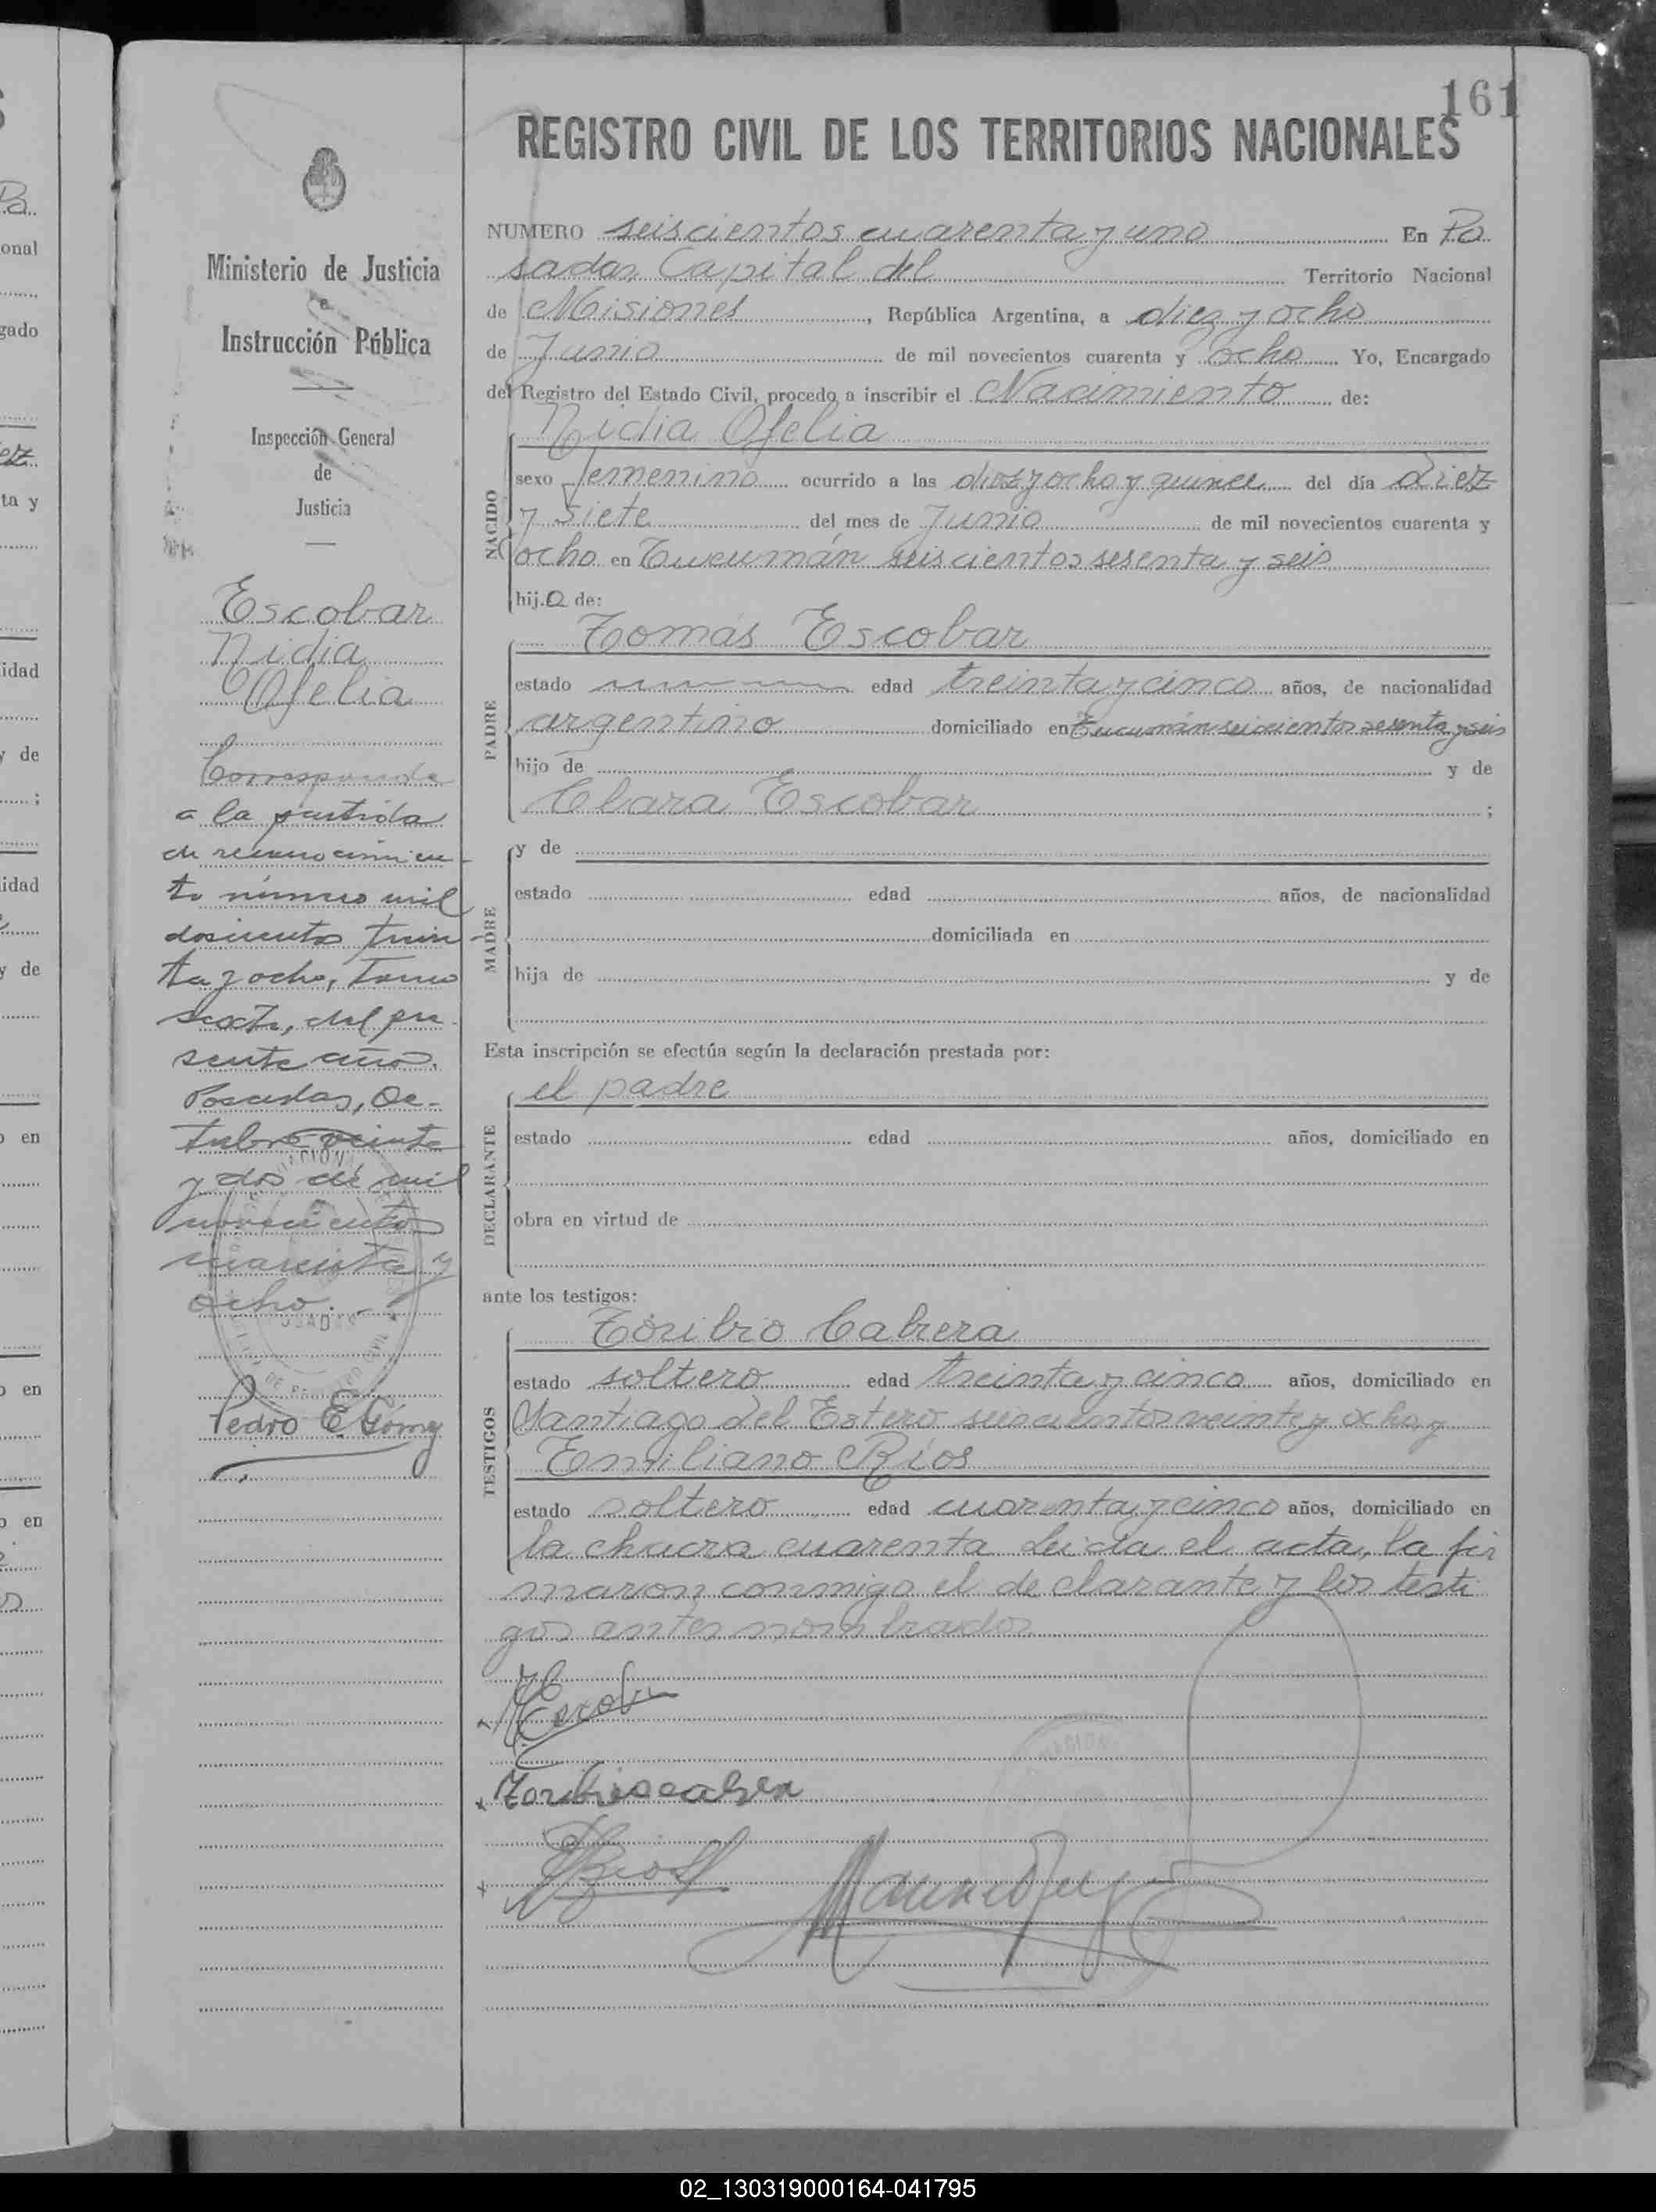 161
REGISTRO CIVIL DE LOS TERRITORIOS NACIONALES
Ministerio de Justicia
e
Instrucción Pública
Inspección General
de
Justicia
Escobar
Nidia
Ofelia
Corresponde
a la partida
de reconocimien-
to número mil
doscientos trein-
ta y ocho, Tomo
sexto, del pre-
sente año.
Posadas, Oc-
tubre veinte
y dos de mil
novecientos
cuarenta y
ocho.
Pedro E Gómez
NUMERO seiscientos cuarenta y uno En Po
sadas, Capital del Territorio Nacional
de Misiones, República Argentina, a diez y ocho
de Junio de mil novecientos cuarenta y ocho Yo, Encargado
del Registro del Estado Civil, procedo a inscribir el Nacimiento de:
Nidia Ofelia
NACIDO
sexo femenino ocurrido a las diez y ocho y quince del día diez
y siete del mes de Junio de mil novecientos cuarenta y
ocho en Tucumán seiscientos sesenta y seis
hija de:
Tomás Escobar
PADRE
estado edad treinta y cinco años, de nacionalidad
argentino domiciliado en Tucumán seiscientos sesenta y seis
hijo de y de
Clara Escobar ;
y de
MADRE
estado edad años, de nacionalidad
domiciliada en
hija de y de
Esta inscripción se efectúa según la declaración prestada por:
el padre
DECLARANTE
estado edad años, domiciliado en
obra en virtud de
ante los testigos:
Toribio Cabrera
TESTIGOS
estado soltero edad treinta y cinco años, domiciliado en
Santiago del Estero seiscientos veinte y ocho y
Emiliano Ríos
estado soltero edad cuarenta y cinco años, domiciliado en
la chacra cuarenta Leida el acta, la fir
maron conmigo el declarante y los testi
gos antes nombrados
Toribio cabrera
02_130319000164-041795